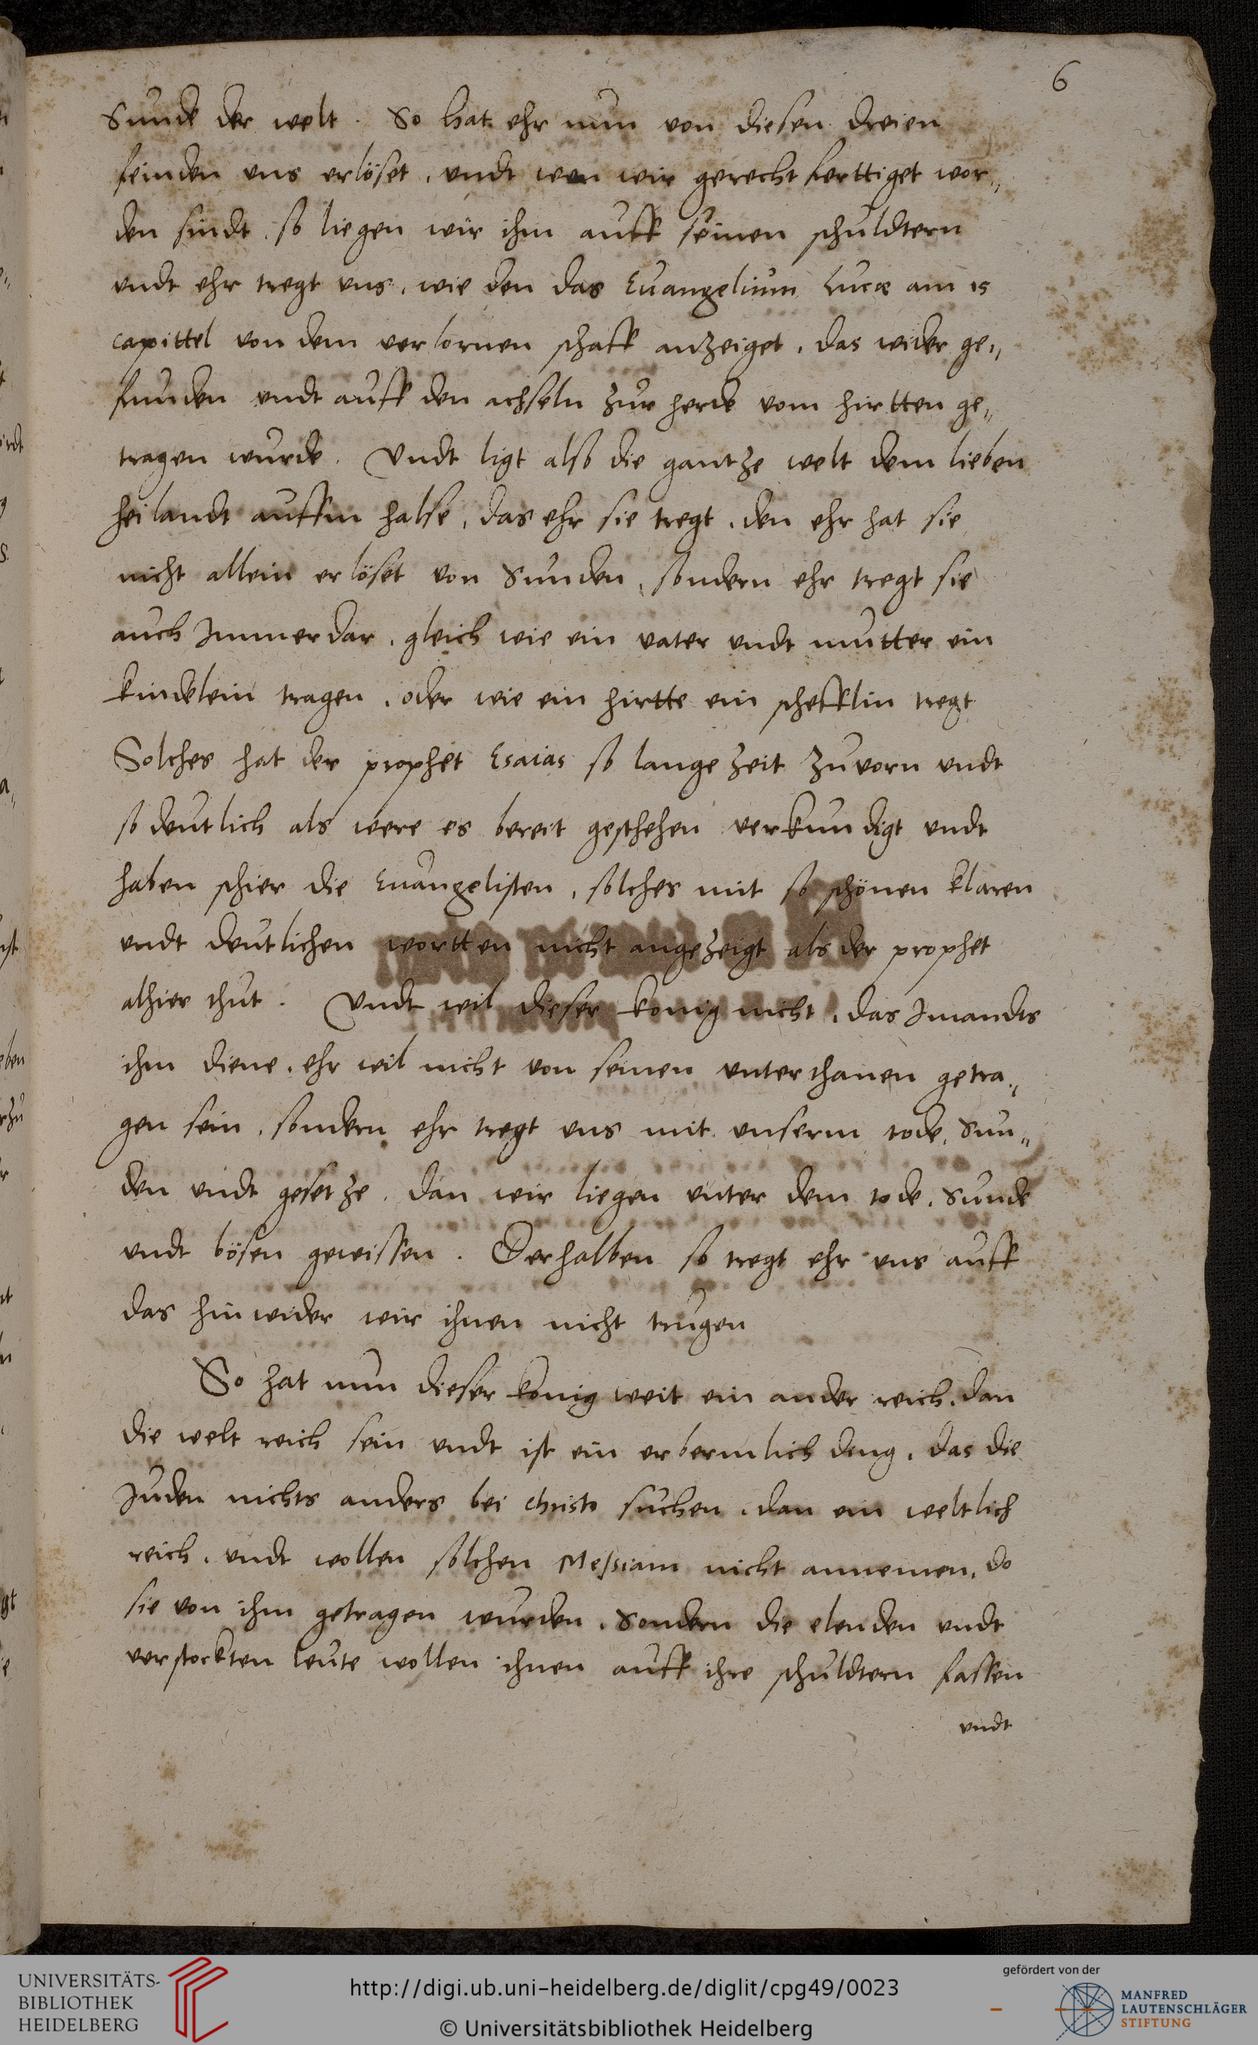 6
Sunde der welt. So hat ehr nun von diesen dreien
feinden uns erlöset, undt wen wir gerecht ferttiget wor„
den sindt, so liegen wir ihm auff seinen schuldtern
undt ehr tregt uns, wie den das Euangelium Lucæ am 15
capittel von dem verlornen schaff anzeiget, das wider ge„
funden undt auff den achseln zur herde vom hirtten ge„
tragen wurde. Undt ligt also die gantze welt dem lieben
heilandt auffm halse, das ehr sie tregt, den ehr hat sie
nicht allein erlöset von Sunden, sondern ehr tregt sie
auch Immerdar, gleich wie ein vater undt mutter ein
kindelein tragen, oder wie ein hirtte ein schefflin tregt
Solches hat der prophet Esaias so lange zeit zuvorn undt
so deutlich als were es bereit geschehen verkundigt undt
haben schier die Euangelisten, solches mit so schönen klaren
undt deutlichen wortten nicht angezeigt als der prophet
alhier thut. Undt wil dieser konig nicht, das Imandts
ihm diene, ehr wil nicht von seinen unterthanen getra„
gen sein, sondern ehr tregt uns mit unserm tode, Sun„
den undt gesetze, dan wir liegen unter dem tode, Sunde
undt bösen gewissen. Derhalben so tregt ehr uns auff
das hinwider wir ihnen nicht trugen
So hat nun dieser konig weit ein ander reich, dan
die welt reich sein undt ist ein erbermlich ding, das die
Juden nichts anders bei Christo suchen, dan ein weltlich
reich, undt wollen solchen Messiam nicht annemen, do
sie von ihm getragen wurden, Sondern die elenden undt
verstockten leute wollen ihnen auff ihre schuldtern fassen
undt
UNIVERSITÄTS-
BIBLIOTHEK
HEIDELBERG
http://digi.ub.uni-heidelberg.de/diglit/cpg49/0023
© Universitätsbibliothek Heidelberg
gefördert von der
MANFRED
LAUTENSCHLÄGER
STIFTUNG